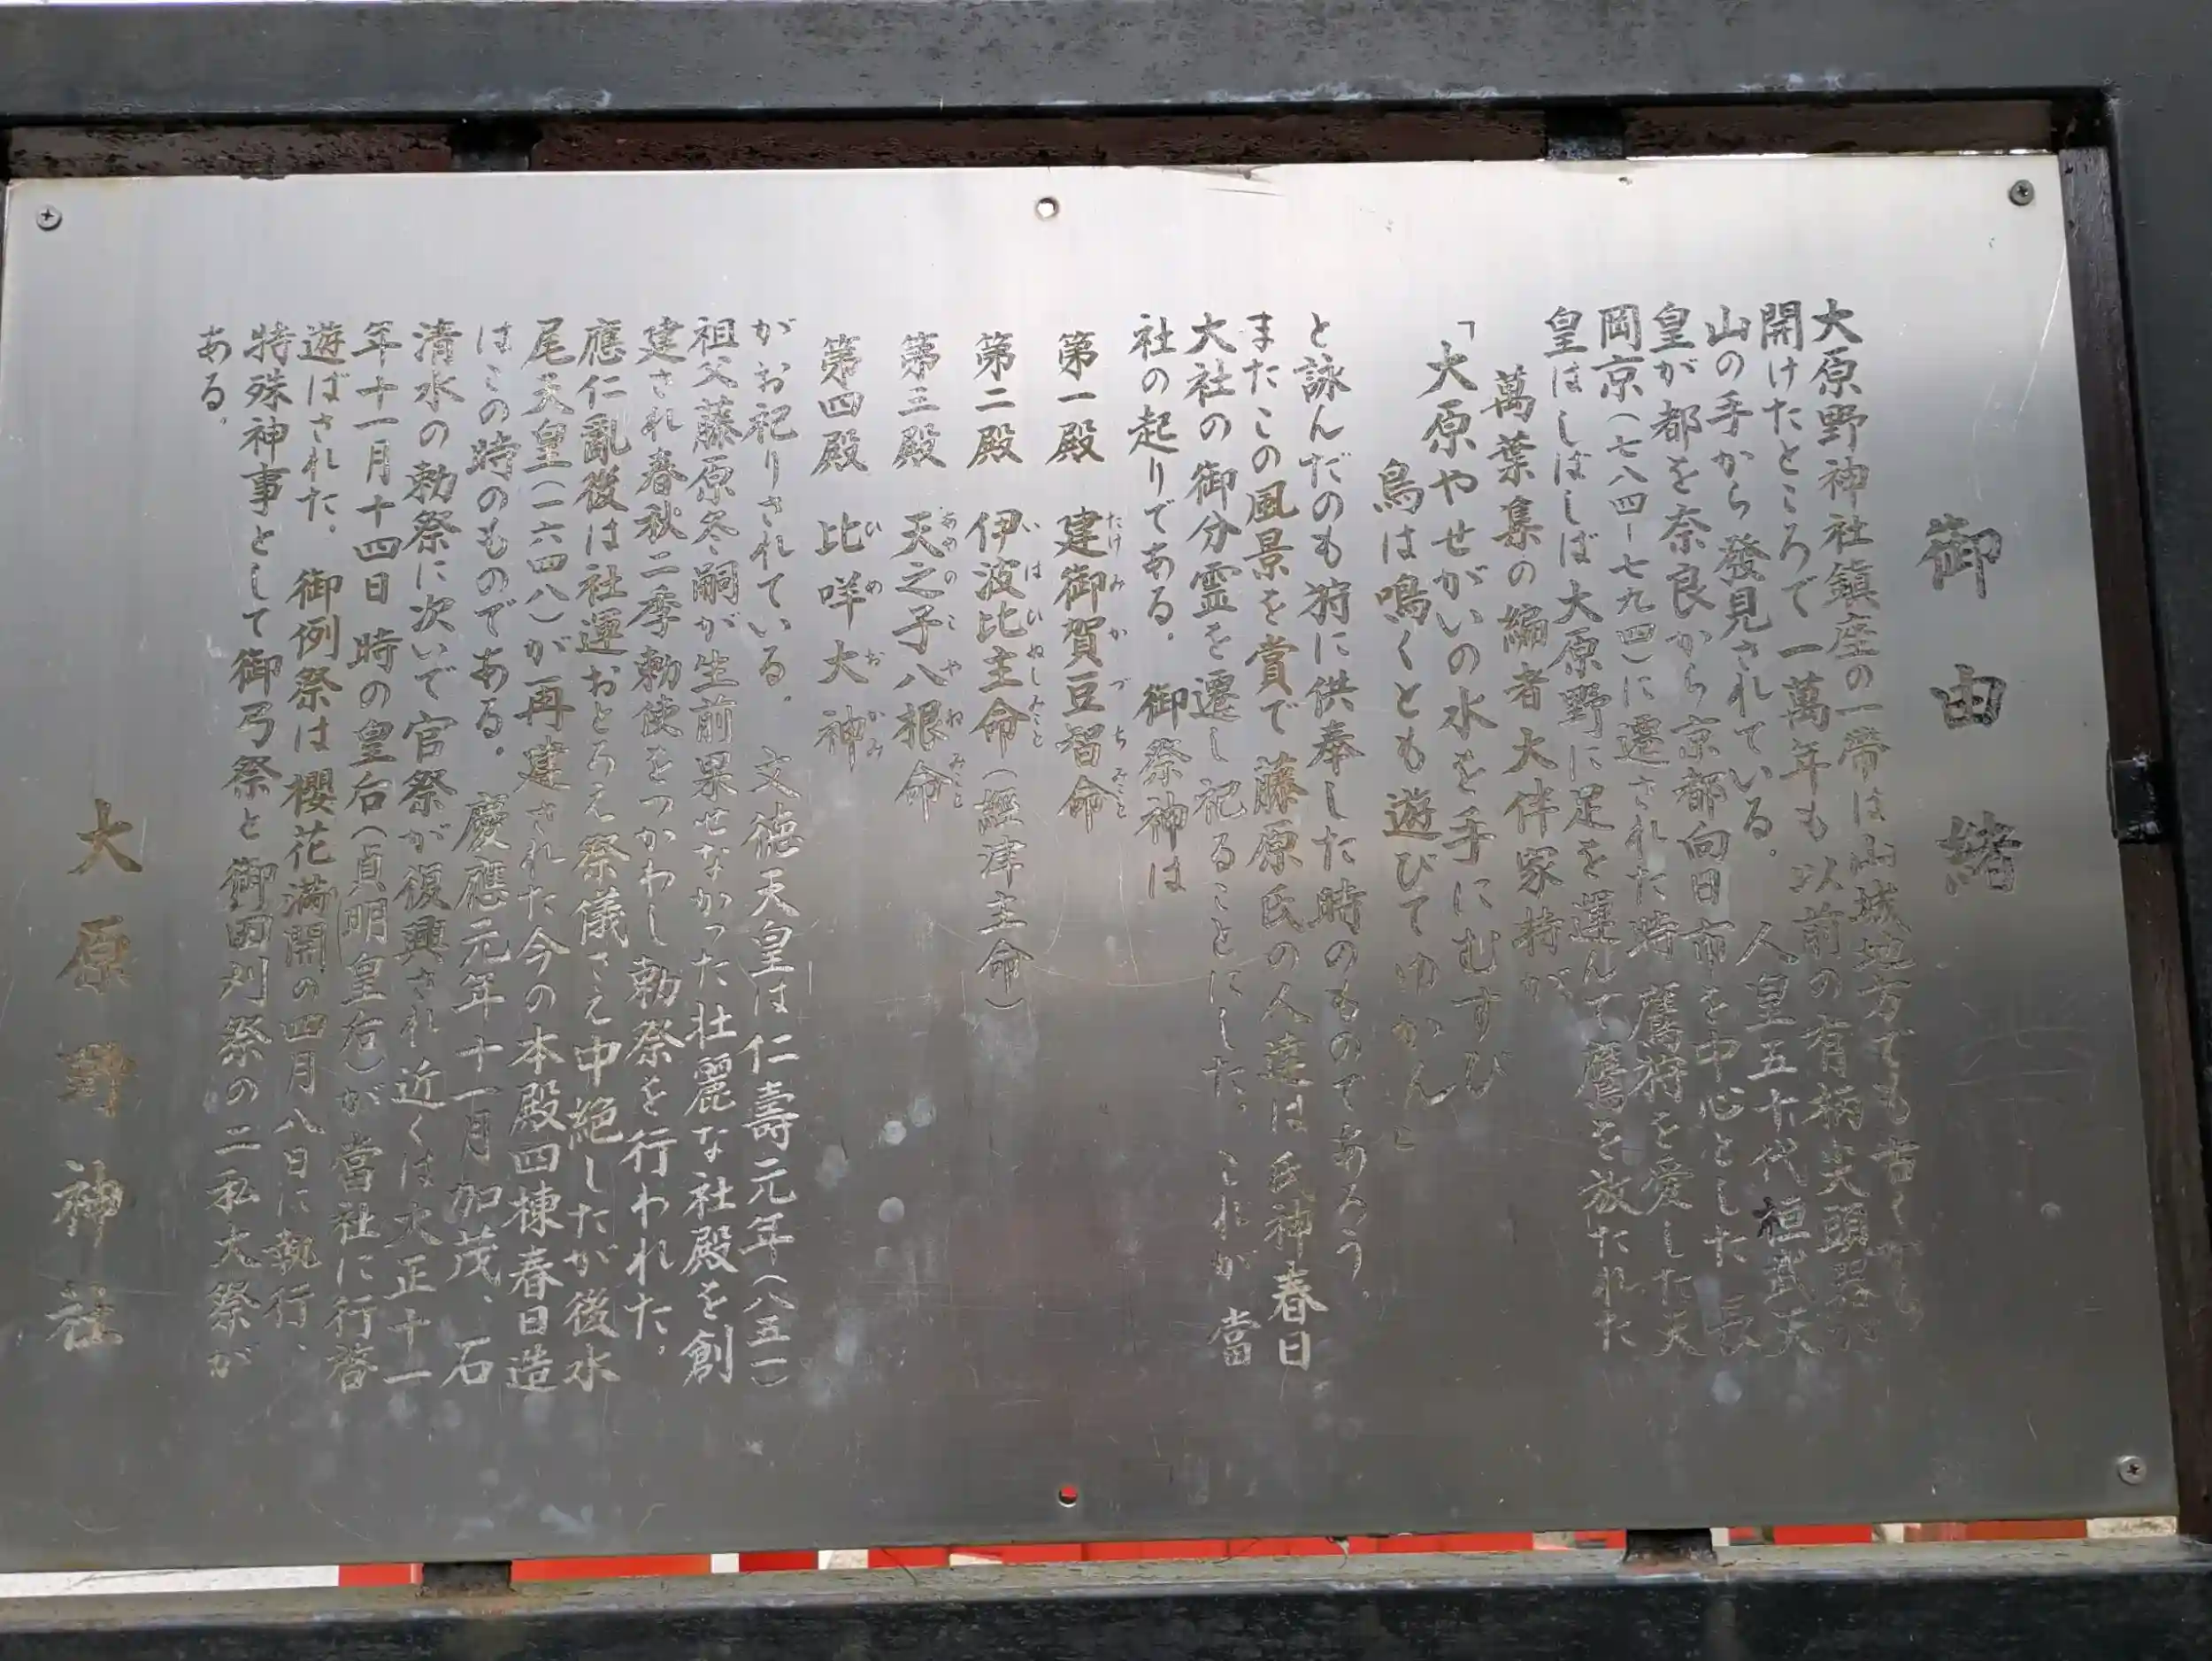 御由緒
大原野神社鎮座の一帯は山城地方でも古く から
開けたところで一萬年も以前の有柄尖頭器が
山の手から發見されている。 人皇五十代桓武天
皇が都を奈良から京都向日市を中心とした 長
岡京(七八四ー七九四)に遷された時 鷹狩を愛した天
皇はしばしば大原野に足を運んで鷹を放たれた
萬葉集の編者大伴家持が
「大原やせがいの水を手にむすび
鳥は鳴くとも遊びてゆかん」
と詠んだのも狩に供奉した時のものであろう。
またこの風景を賞で藤原氏の人達は氏神春日
大社の御分霊を遷し祀ることにした。 これが 當
社の起りである。 御祭神は
第一殿 建御賀豆智命
たけみかづちみこと
第二殿 伊波比主命(經津主命)
いはひぬしみこと
第三殿 天之子八根命
あめのこやねみこと
第四殿 比咩大神
ひめおかみ
がお祀りされている。 文徳天皇は仁壽元年(八五一)
祖父藤原冬嗣が生前果せなかった壮麗な社殿を創
建され春秋二季勅使をつかわし 勅祭を行われた。
應仁亂後は社運おとろえ祭儀さえ中絶したが後水
尾天皇(一六四八)が再建された今の本殿四棟春日造
はこの時のものである。 慶應元年十一月加茂、石
清水の勅祭に次いで官祭が復興され 近くは大正十一
年十一月十四日 時の皇后(貞明皇后)が 當社に行啓
遊ばされた。 御例祭は櫻花満開の四月八日に執行、
特殊神事として御弓祭と御田刈祭の二私大祭が
ある。
大原野神社